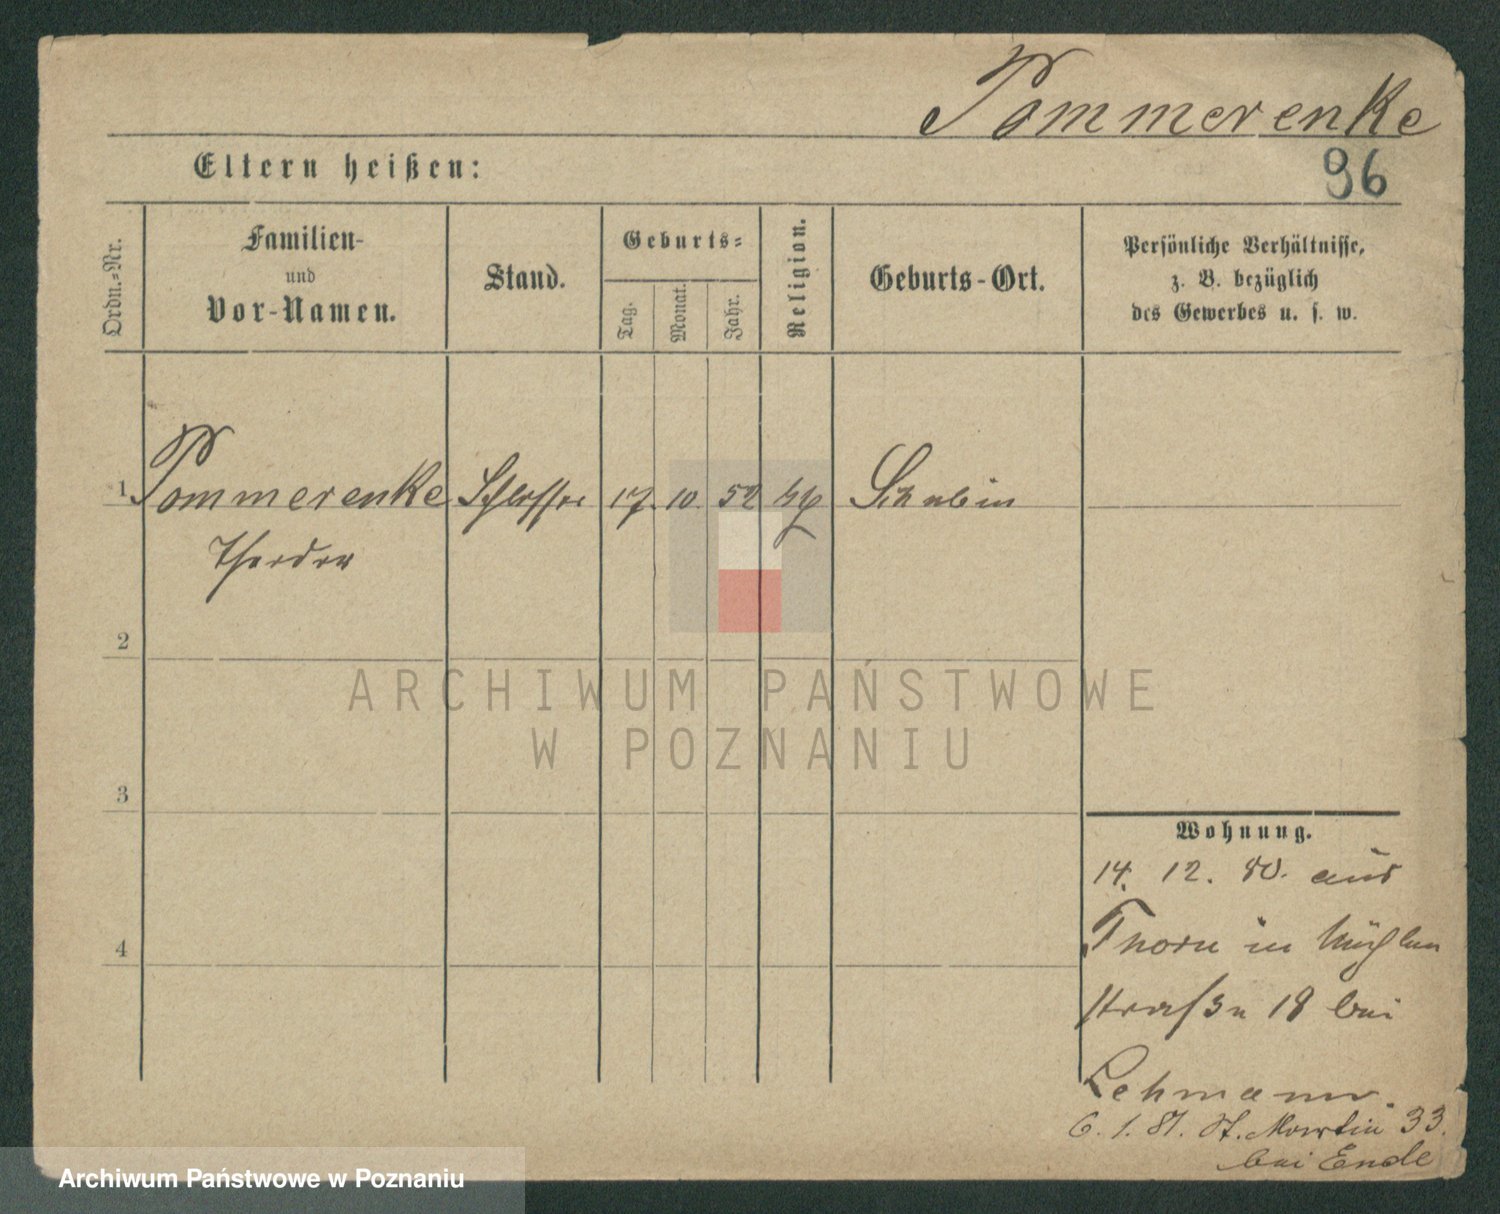 Pommerenke
96
Eltern heißen:
Ordn.-Nr.
Familien-
und
Vor-Namen.
Stand.
Geburts-
Tag.
Monat.
Jahr.
Religion.
Geburts-Ort.
Persönliche Verhältnisse,
z. B. bezüglich
des Gewerbes u. s. w.
1 Pommerenke Schlosser 17. 10. 52 Schubin
Theodor
2
3
4
Wohnung.
14. 12. 80. aus
Thorn in Mühlen
straße 18 bei
Lehmann.
6. 1. 81. St. Martin 33.
bei Ende
ARCHIWUM PAŃSTWOWE
W POZNANIU
Archiwum Państwowe w Poznaniu